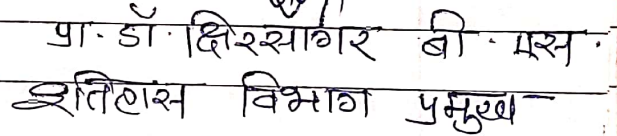 प्रा. डॉ. क्षिरसागर बी. एस.
इतिहास विभाग प्रमुख